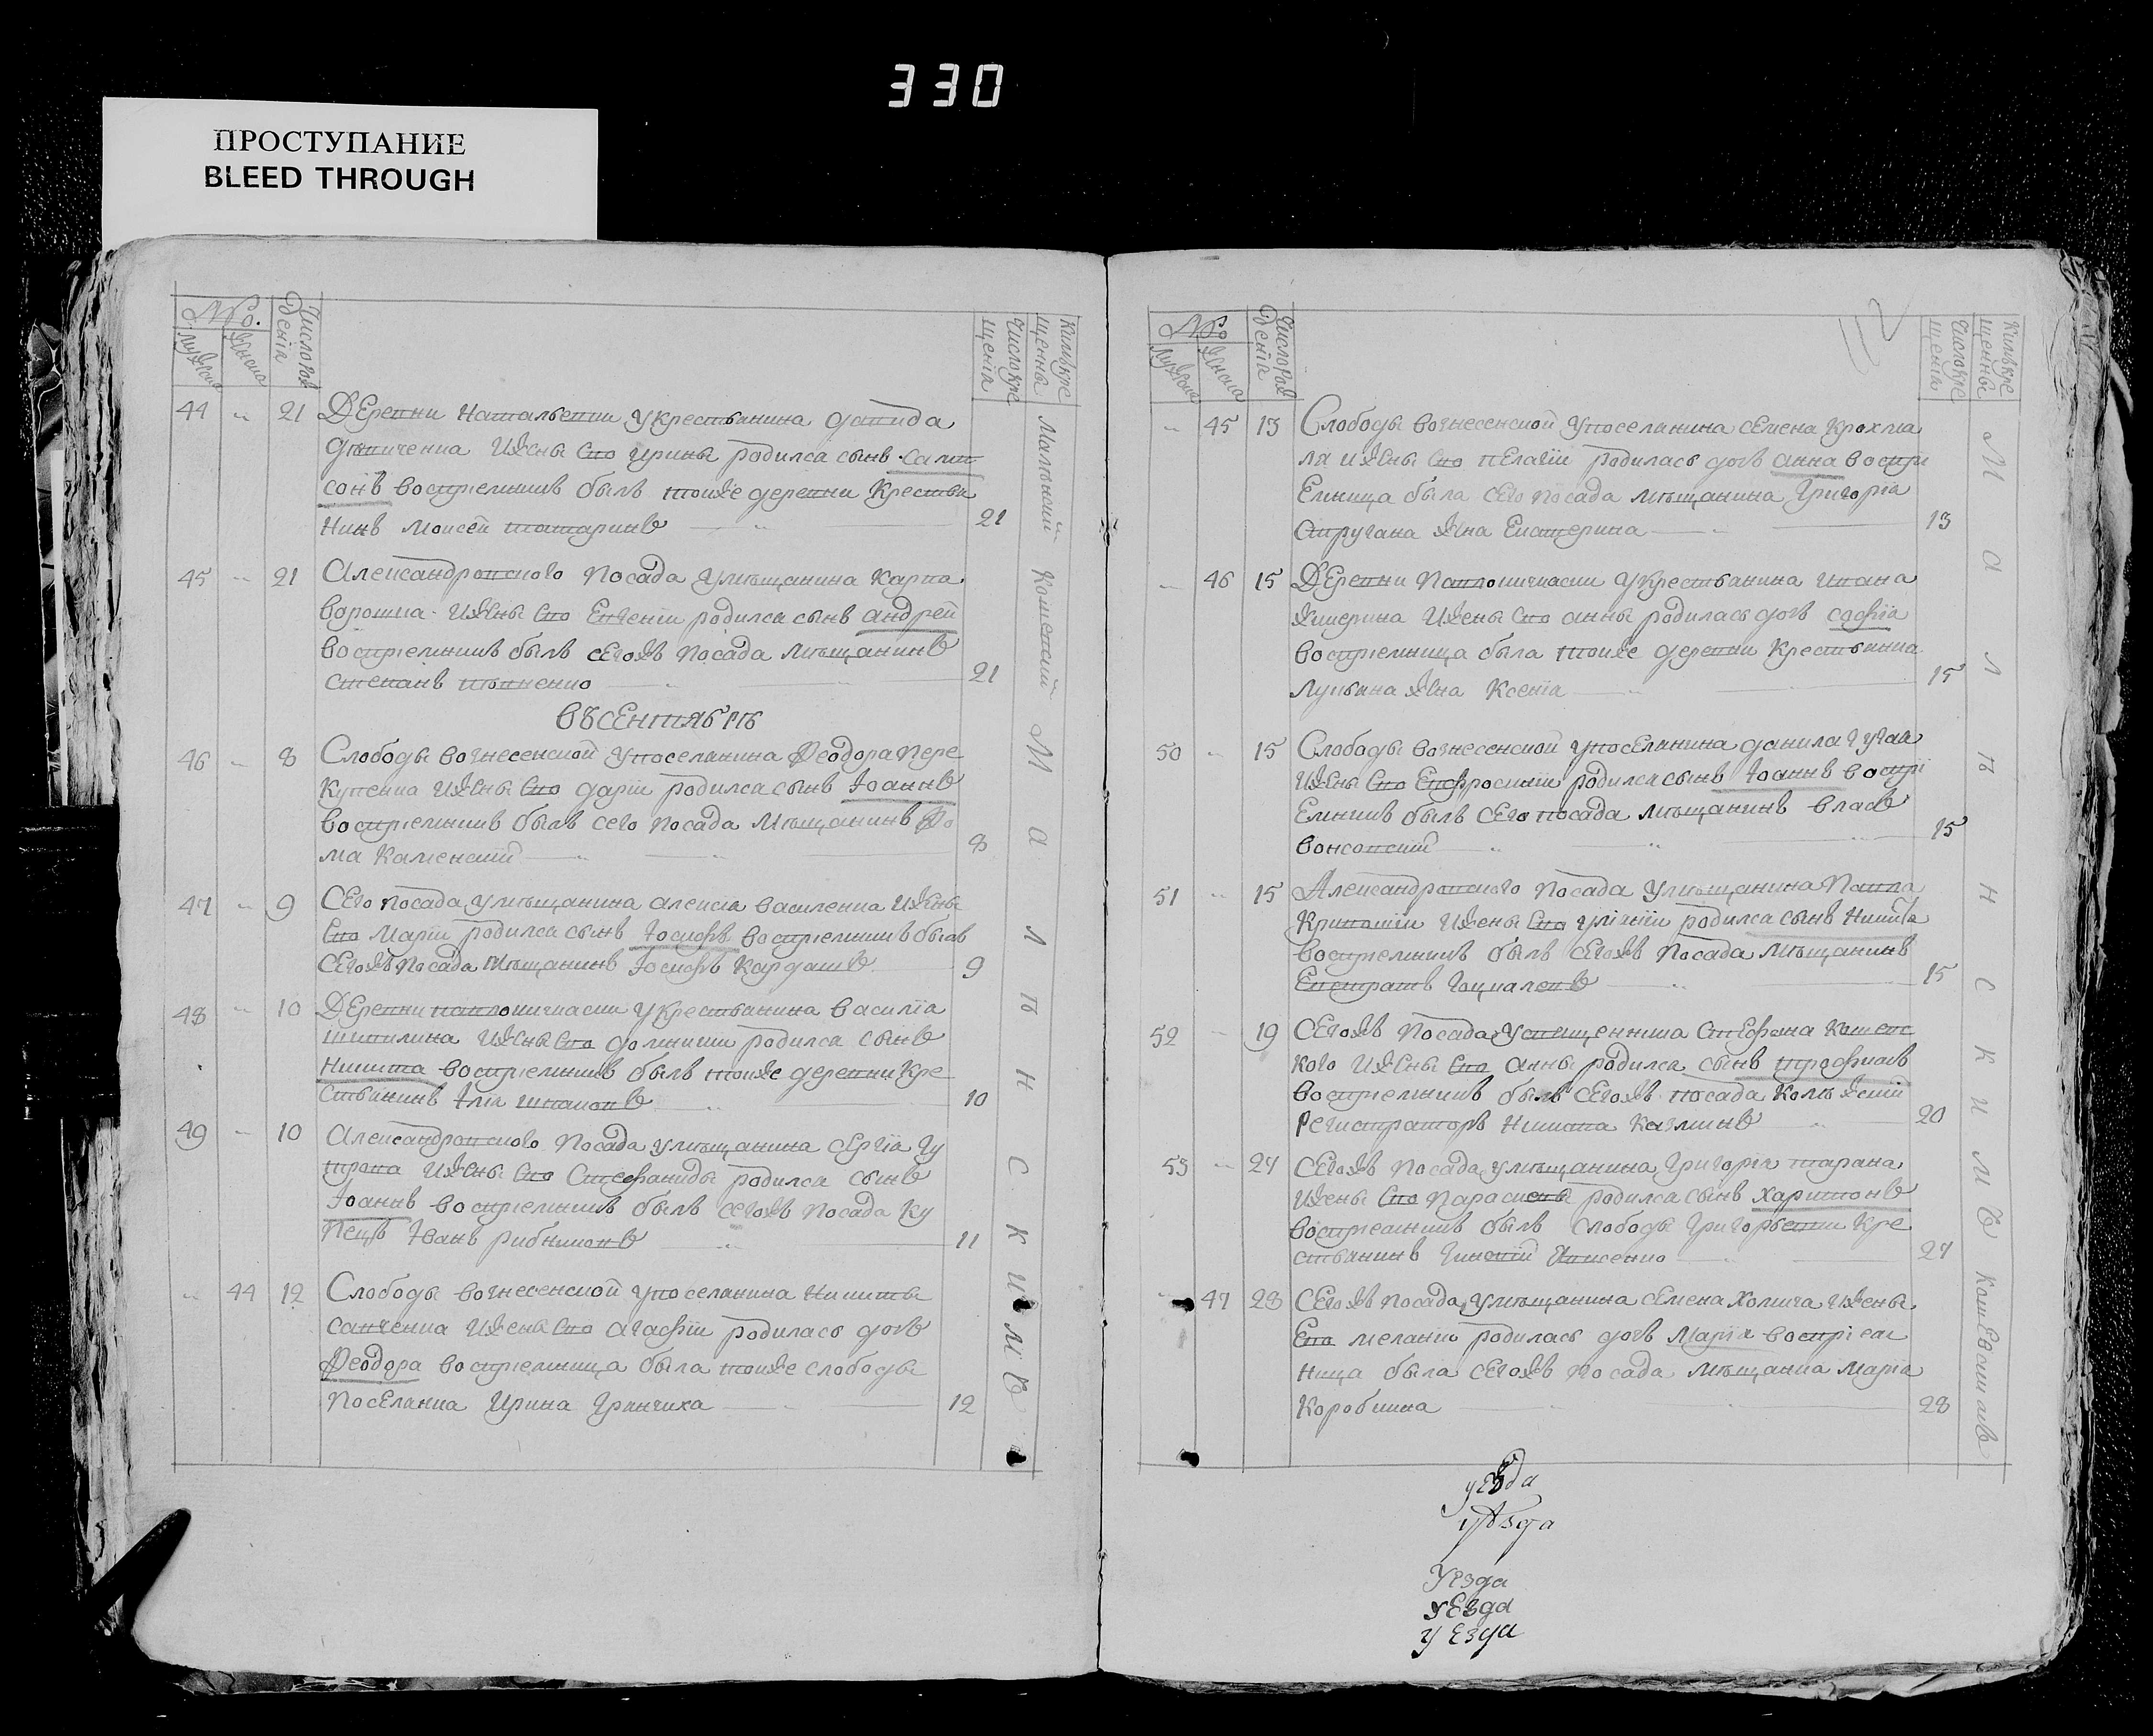 330
ПРОСТУПАНИЕ
BLEED THROUGH
№.
мужска
женска
Число рож
денія
Число кре
щенія
Кимъ кре
щенны
44 „ 21 Деревни Натальевки у крестьянина давида
жены его ирины родился сынъ самп
сонъ воспріемникъ былъ тоиже деревни крестья
нинъ Моисей татаринъ 21
45 „ 21 Александровского посада у мѣщанина карпа
ворошка жены его Евгеніи родился сынъ андрей
воспріемникъ былъ сегожъ посада мѣщанинъ
степанъ 21
въ сентябрѣ
46 „ 8 Слободы вознесенской у поселянина Ѳеодора пере
купенка жены его даріи родился сынъ Іоаннъ
воспріемникъ былъ сего посада мѣщанинъ Ѳо
ма Каменскій 8
47 „ 9 Сего посада у мѣщанина алексія василенка жены
его маріи родился сынъ Іосифъ воспріемникъ былъ
сегожъ посада мѣщанинъ Іосифъ Кардашъ 9
48 „ 10 Деревни павлокичкаски у крестьянина василія
шипилина жены его домникіи родился сынъ
Никита воспріемникъ былъ тоиже деревни кре
стьянинъ Ілія шпаковъ 10
49 „ 10 Александровского посада у мѣщанина сергія
жены его Стефаниды родился сынъ
Іоаннъ воспріемникъ былъ сегожъ посада ку
пецъ Іванъ рибниковъ 11
„ 44 12 Слободы вознесенской у поселянина Никиты
санченка жены его агафіи родилась дочь
Ѳеодора воспріемница была тоиже слободы
поселянка Ирина Гранчиха 12
Малѣнскій Комскій
МАЛѢНСКИМЪ
№
мужска
женска
Число рож
денія
Число кре
щенія
Кимъ кре
щенны
112
„ 45 13 Слободы вознесенской у поселянина семена крохма
ля жены его пелагіи родилась дочь анна воспрі
емница была сего посада мѣщанина Григорія
Стругана жена Екатерина 13
„ 46 15 Деревни Павлокичкаски у крестьянина ивана
жены его анны родилась дочь софія
воспріемница была тоиже деревни крестьянина
Лукьяна жена Ксенія 15
50 „ 15 Слободы вознесенской у поселянина данила гугая
жены его Евфросиніи родился сынъ Іоаннъ воспрі
емникъ былъ сего посада мѣщанинъ власъ
вонсовскій 15
51 „ 15 Александровского посада у мѣщанина Павла
жены его уліаніи родился сынъ Никита
воспріемникъ былъ сегожъ посада мѣщанинъ
Евстратъ 15
52 „ 19 Сегожъ посада у священника Стефана Кошевс
кого жены его анны родился сынъ трофимъ
воспріемникъ былъ сегожъ посада Колѣжскій
Регистраторъ Никита 20
53 „ 27 Сегожъ посада у мѣщанина Григорія тарана
жены его параскевы родился сынъ харитонъ
воспріемникъ былъ слободы Григорьевки кре
стьянинъ 27
„ 47 28 Сегожъ посада у мѣщанина семена Холича жены
его меланіи родилась дочь Марія воспріем
ница была сегожъ посада мѣщанка Марія
Коробкина 28
МАЛѢНСКИМЪ
уезда
уѣзда
Уезда
уЕзда
уЕзда